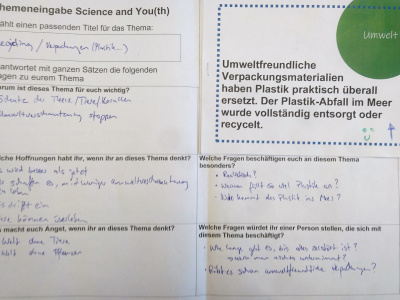 hemeneingabe Science and You(th)
ählt einen passenden Titel für das Thema:
/ Verpackungen (Plastik...)
antwortet mit ganzen Sätzen die folgenden
gen zu eurem Thema
arum ist dieses Thema für euch wichtig?
der Tiere / Tiere / Korallen
mweltverschmutzung stoppen
Umwelt
Umweltfreundliche
Verpackungsmaterialien
haben Plastik praktisch überall
ersetzt. Der Plastik-Abfall im Meer
wurde vollständig entsorgt oder
recycelt.
lche Hoffnungen habt ihr, wenn ihr an dieses Thema denkt?
wird besser als jetzt
schaffen es, mit weniger Umweltverschmutzung
leben
können überleben
s macht euch Angst, wenn ihr an dieses Thema denkt?
Welt ohne Tiere
Welt ohne Pflanzen
Welche Fragen beschäftigen euch an diesem Thema
besonders?
• Warum gibt es so viel Plastik ?
• Wie kommt das Plastik ins Meer?
Welche Fragen würdet ihr einer Person stellen, die sich mit
diesem Thema beschäftigt?
• Wie lange geht es, bis alles zerstört ist?
wenn man nichts unternimmt?
• Gibt es schon umweltfreundliche Verpackungen?